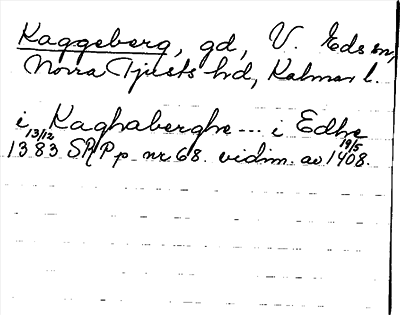 Kaggeberg, gd, V. Eds sn,
Norra Tjusts hd, Kalmar l.
i Kaghaberghe --- i Edhe
13/12 1383 SRPp nr 68. vidim. av 19/5 1408.